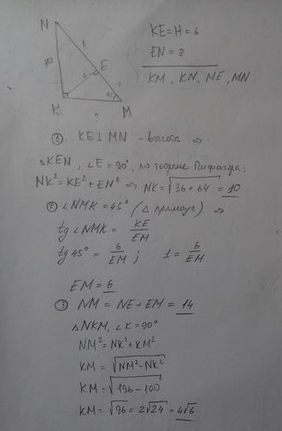 N
KE=H=6
EN=8
E
KM, KN, ME, MN
K
M
?
① KE⊥MN - высота ⇒
△KEN, ∠E=90°, по теореме Пифагора:
NK²=KE²+EN² ⇒ NK=√36+64=10
② ∠NMK=45° (△ прямоуг) ⇒
tg∠NMK=KE/EM
tg45°=6/EM; 1=6/EM
EM=6
③ NM=NE+EM=14
△NKM, ∠K=90°
NM²=NK²+KM²
KM=√NM²-NK²
KM=√196-100
KM=√96=2√24=4√6